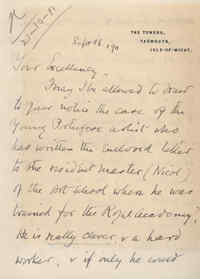 THE TOWERS,
YARMOUTH,
ISLE-OF-WIGHT.
Your Excellency.
Pray I be allowed to
to your notice the case of the
Young Portuguese artist who
has written the enclosed letter
to the resident master (Nicol)
of the Art School where he was
trained for the Royal Academy.
He is really clever, & a hard
worker, & if only he could